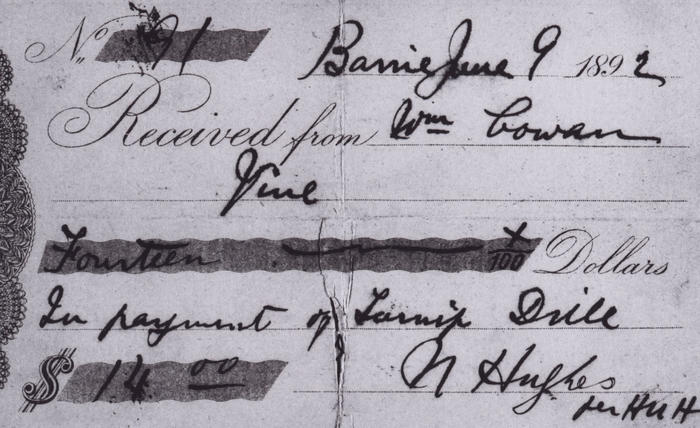 No 91 Barrie June 9 1892
Received from Wm Cowan
Vine
Fourteen x/100 Dollars
In payment of Turnip Drill
$ 14 00 N Hughes
per HUH